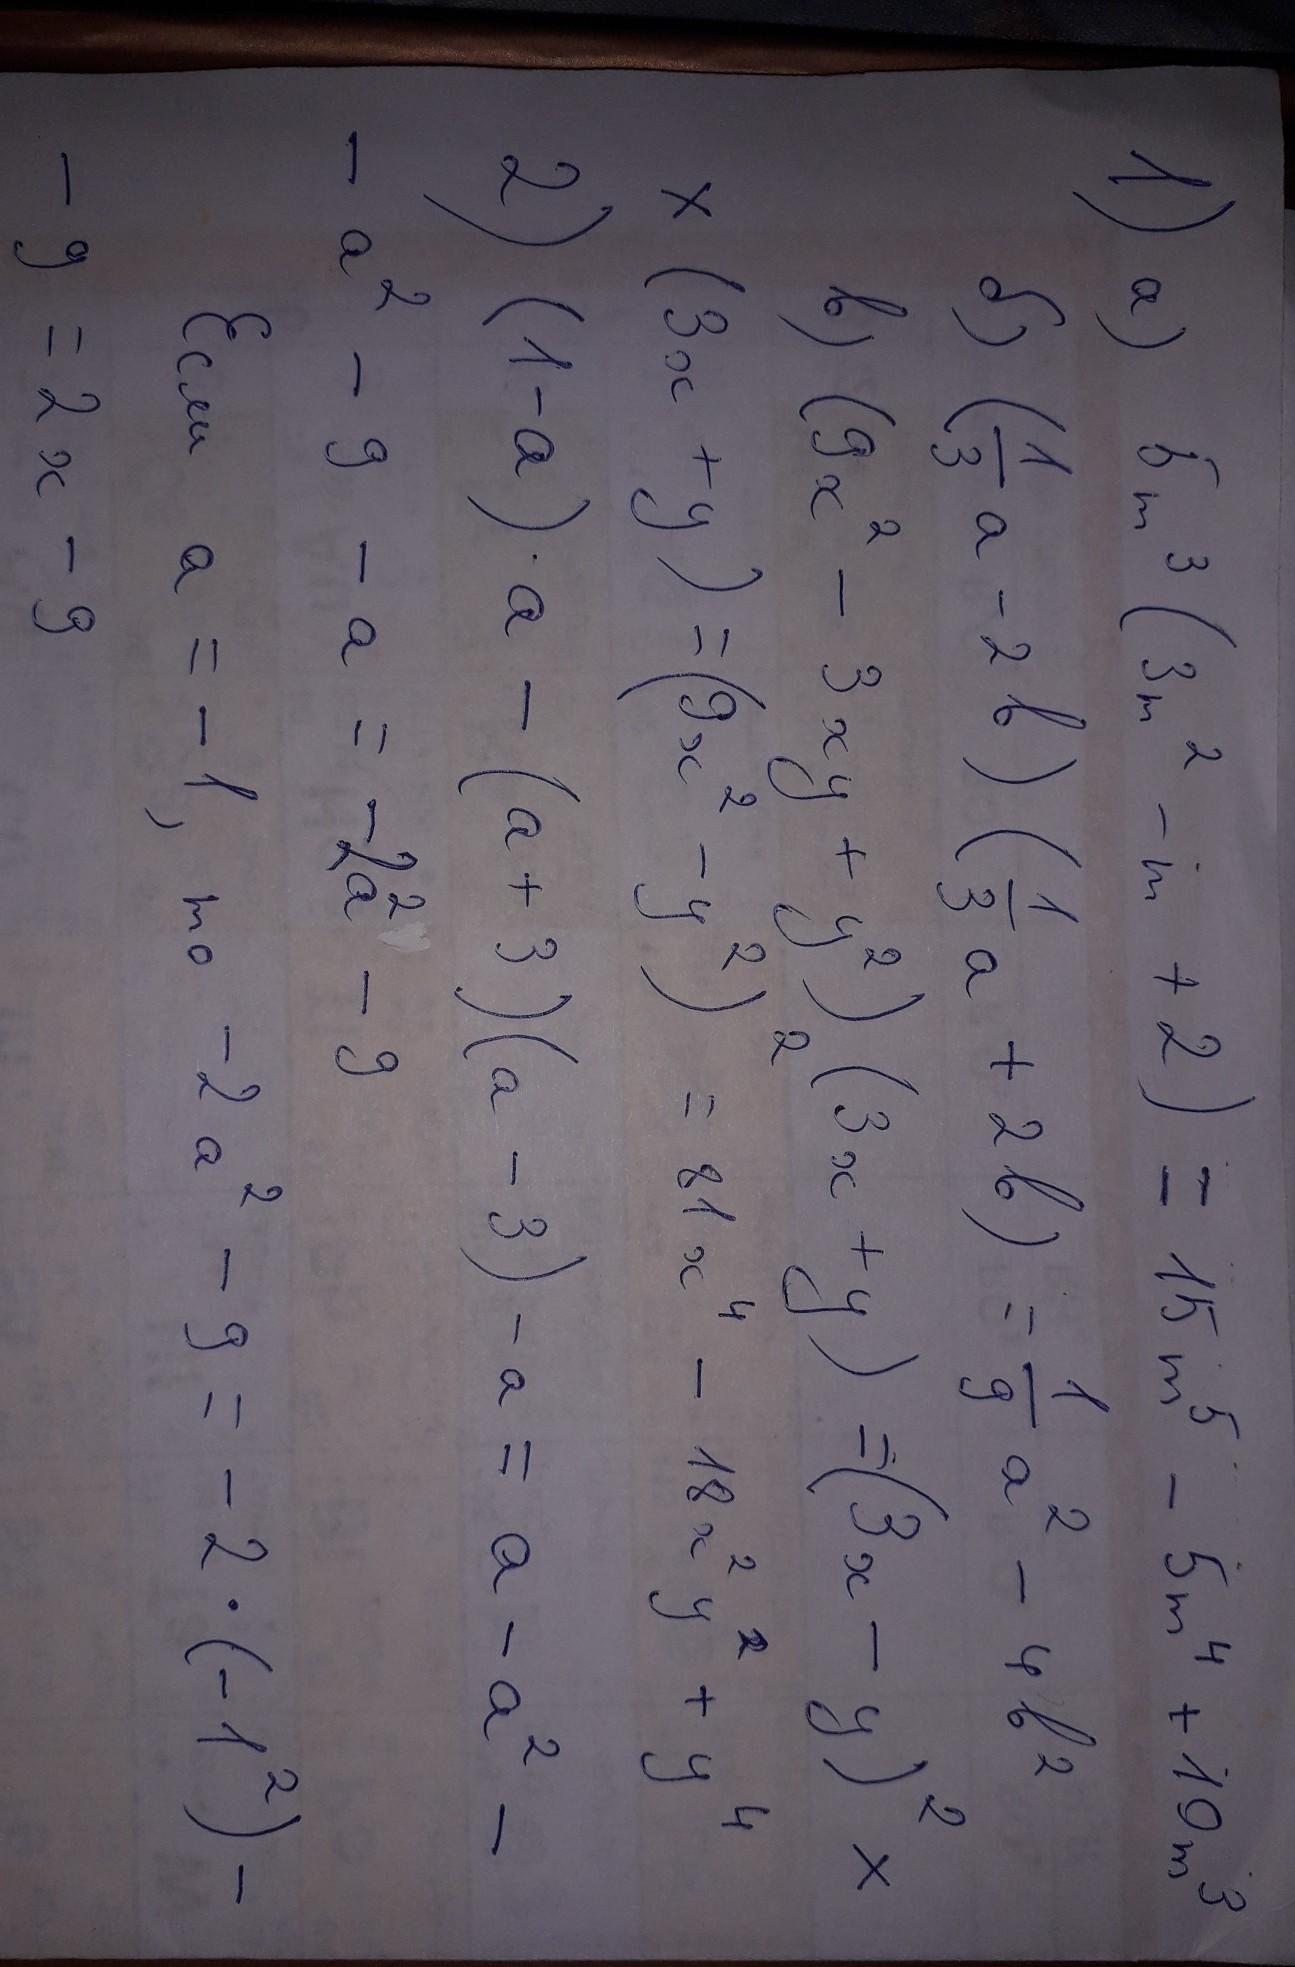 1) а) 5m³(3m² - m + 2) = 15m⁵ - 5m⁴ + 10m³
б) (1/3a - 2b)(1/3a + 2b) = 1/9a² - 4b²
в) (9x² - 3xy + y²)(3x + y) = (3x - y)² ×
× (3x + y)² = (9x² - y²)² = 81x⁴ - 18x²y² + y⁴
2) (1-a)·a - (a+3)(a-3) - a = a - a² -
- a² - 9 - a = -2a² - 9
Если a = -1, то -2a² - 9 = -2·(-1²) -
- 9 = 2x - 9